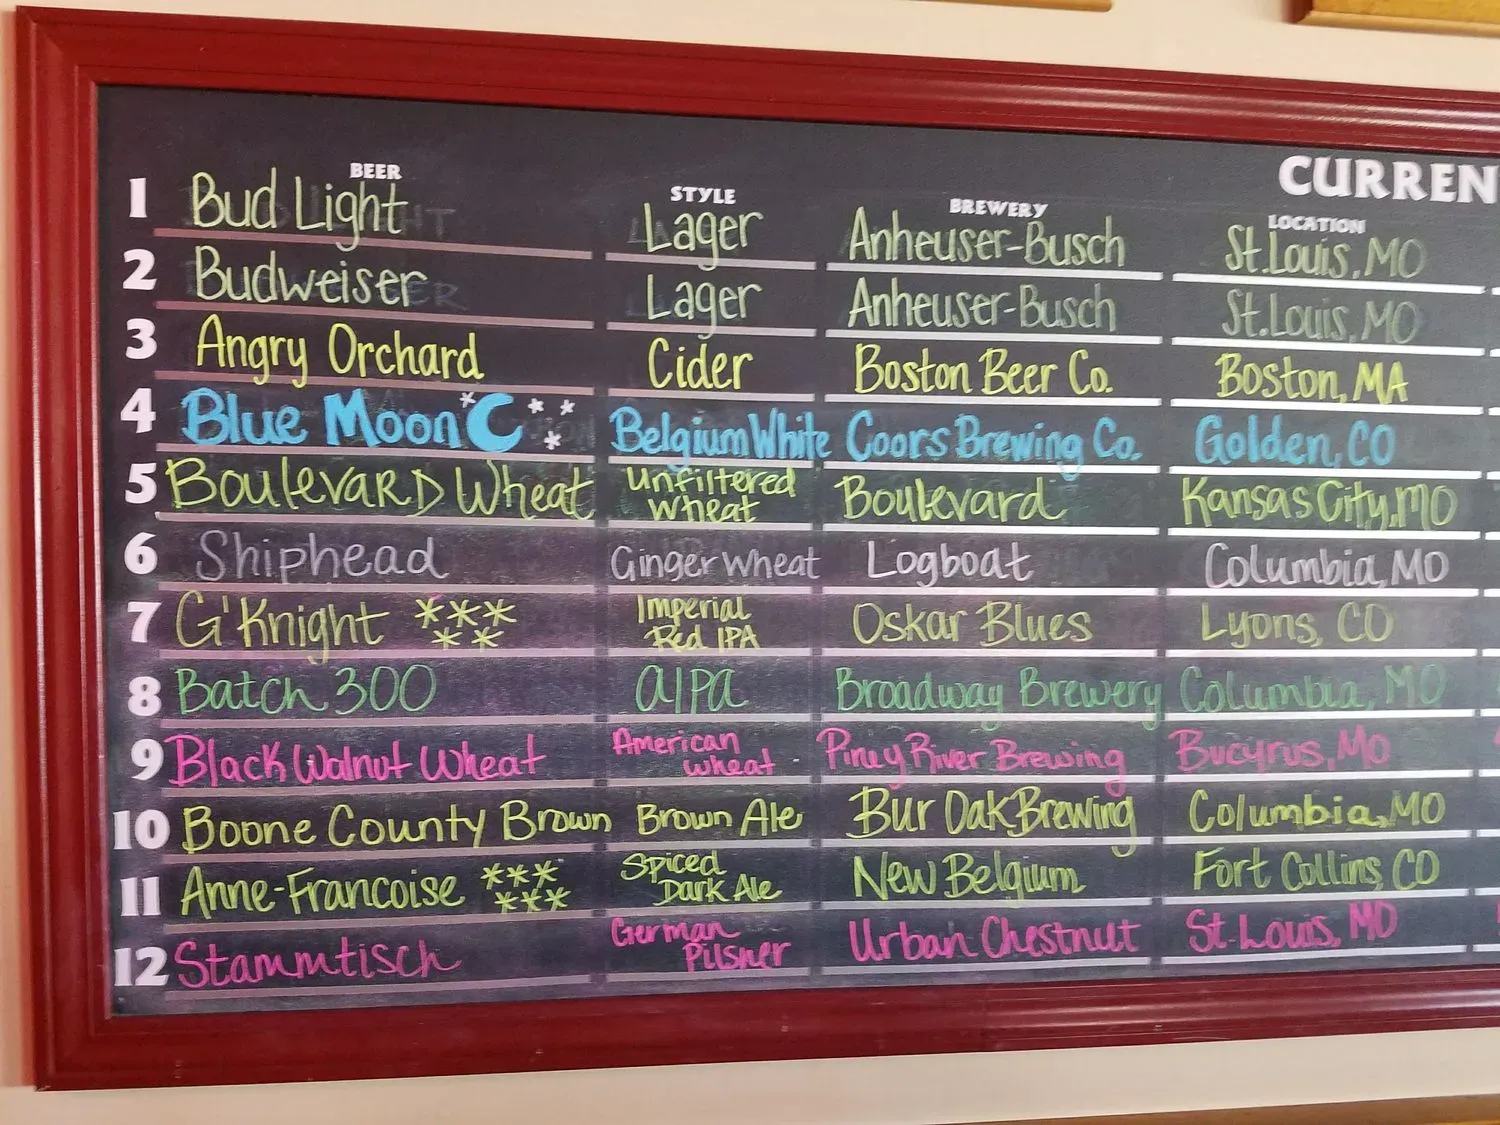 CURREN
BEER STYLE BREWERY LOCATION
1 Bud Light Lager Anheuser-Busch St.Louis, MO
2 Budweiser Lager Anheuser-Busch St.Louis, MO
3 Angry Orchard Cider Boston Beer Co. Boston, MA
4 Blue Moon Belgium White Coors Brewing Co. Golden, CO
5 Boulevard Wheat Unfiltered Wheat Boulevard Kansas City, MO
6 Shiphead Ginger Wheat Logboat Columbia, MO
7 G'Knight ***** Imperial Red IPA Oskar Blues Lyons, CO
8 Batch 300 AIPA Broadway Brewery Columbia, MO
9 Black Walnut Wheat American Wheat Piney River Brewing Bucyrus, MO
10 Boone County Brown Brown Ale Bur Oak Brewing Columbia, MO
11 Anne-Francoise ****** Spiced Dark Ale New Belgium Fort Collins, CO
12 Stammtisch German Pilsner Urban Chestnut St. Louis, MO